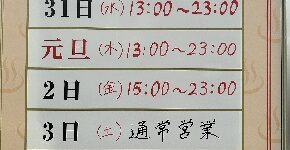 31日(水)13:00〜23:00
元旦(木)13:00〜23:00
2日(金)15:00〜23:00
3日(土)通常営業